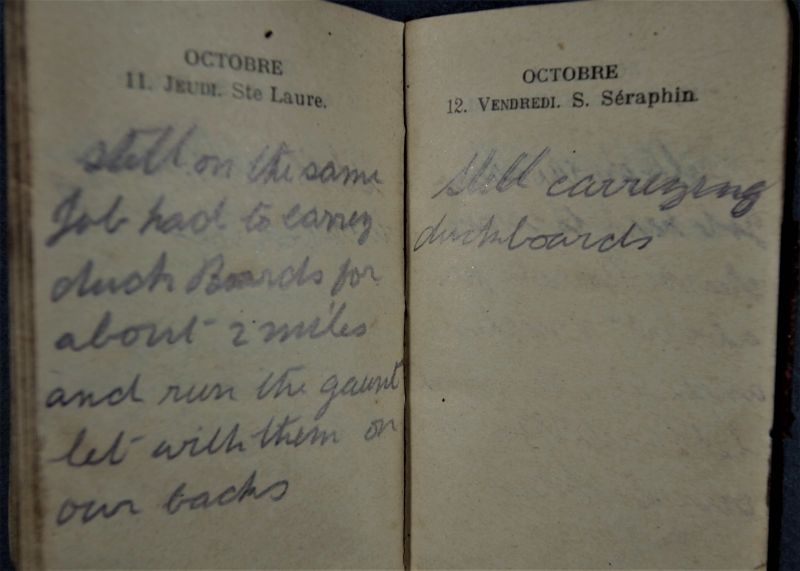 OCTOBRE
11. JEUDI. Ste Laure.
still on the same
Job had to carrey
duck Boards for
about 2 miles
and run the gaunt
let with them on
our backs
OCTOBRE
12. VENDREDI. S. Séraphin.
still carreying
duckboards